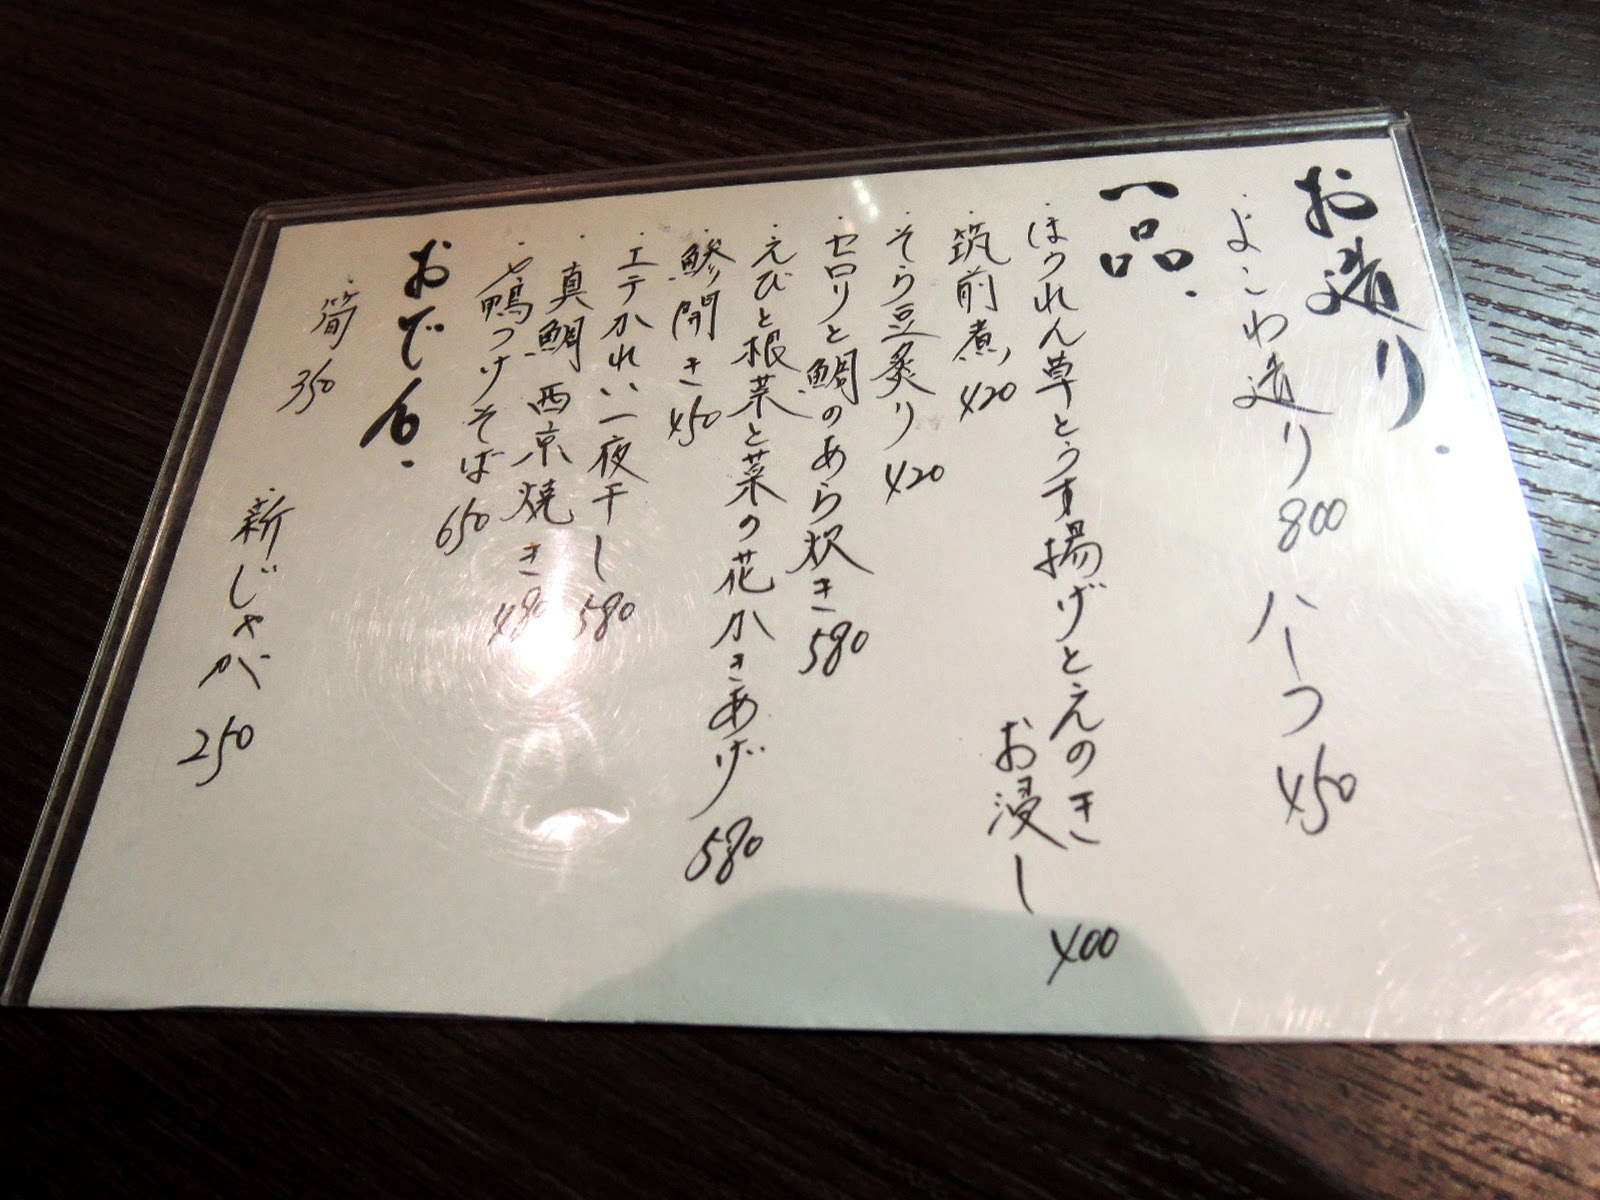 お造り.
・よこわ造り 800 ハーフ 450
一品.
・ほうれん草とうす揚げとえのき
お浸し 400
・筑前煮 420
・そら豆炙り 420
・セロリと鯛のあら炊き 580
・えびと根菜と菜の花かきあげ 580
・鯵開き 450
・エテかれい一夜干し 580
・真鯛西京焼き 480
・鴨つけそば 650
おでん.
・筍 350
・新じゃが 250